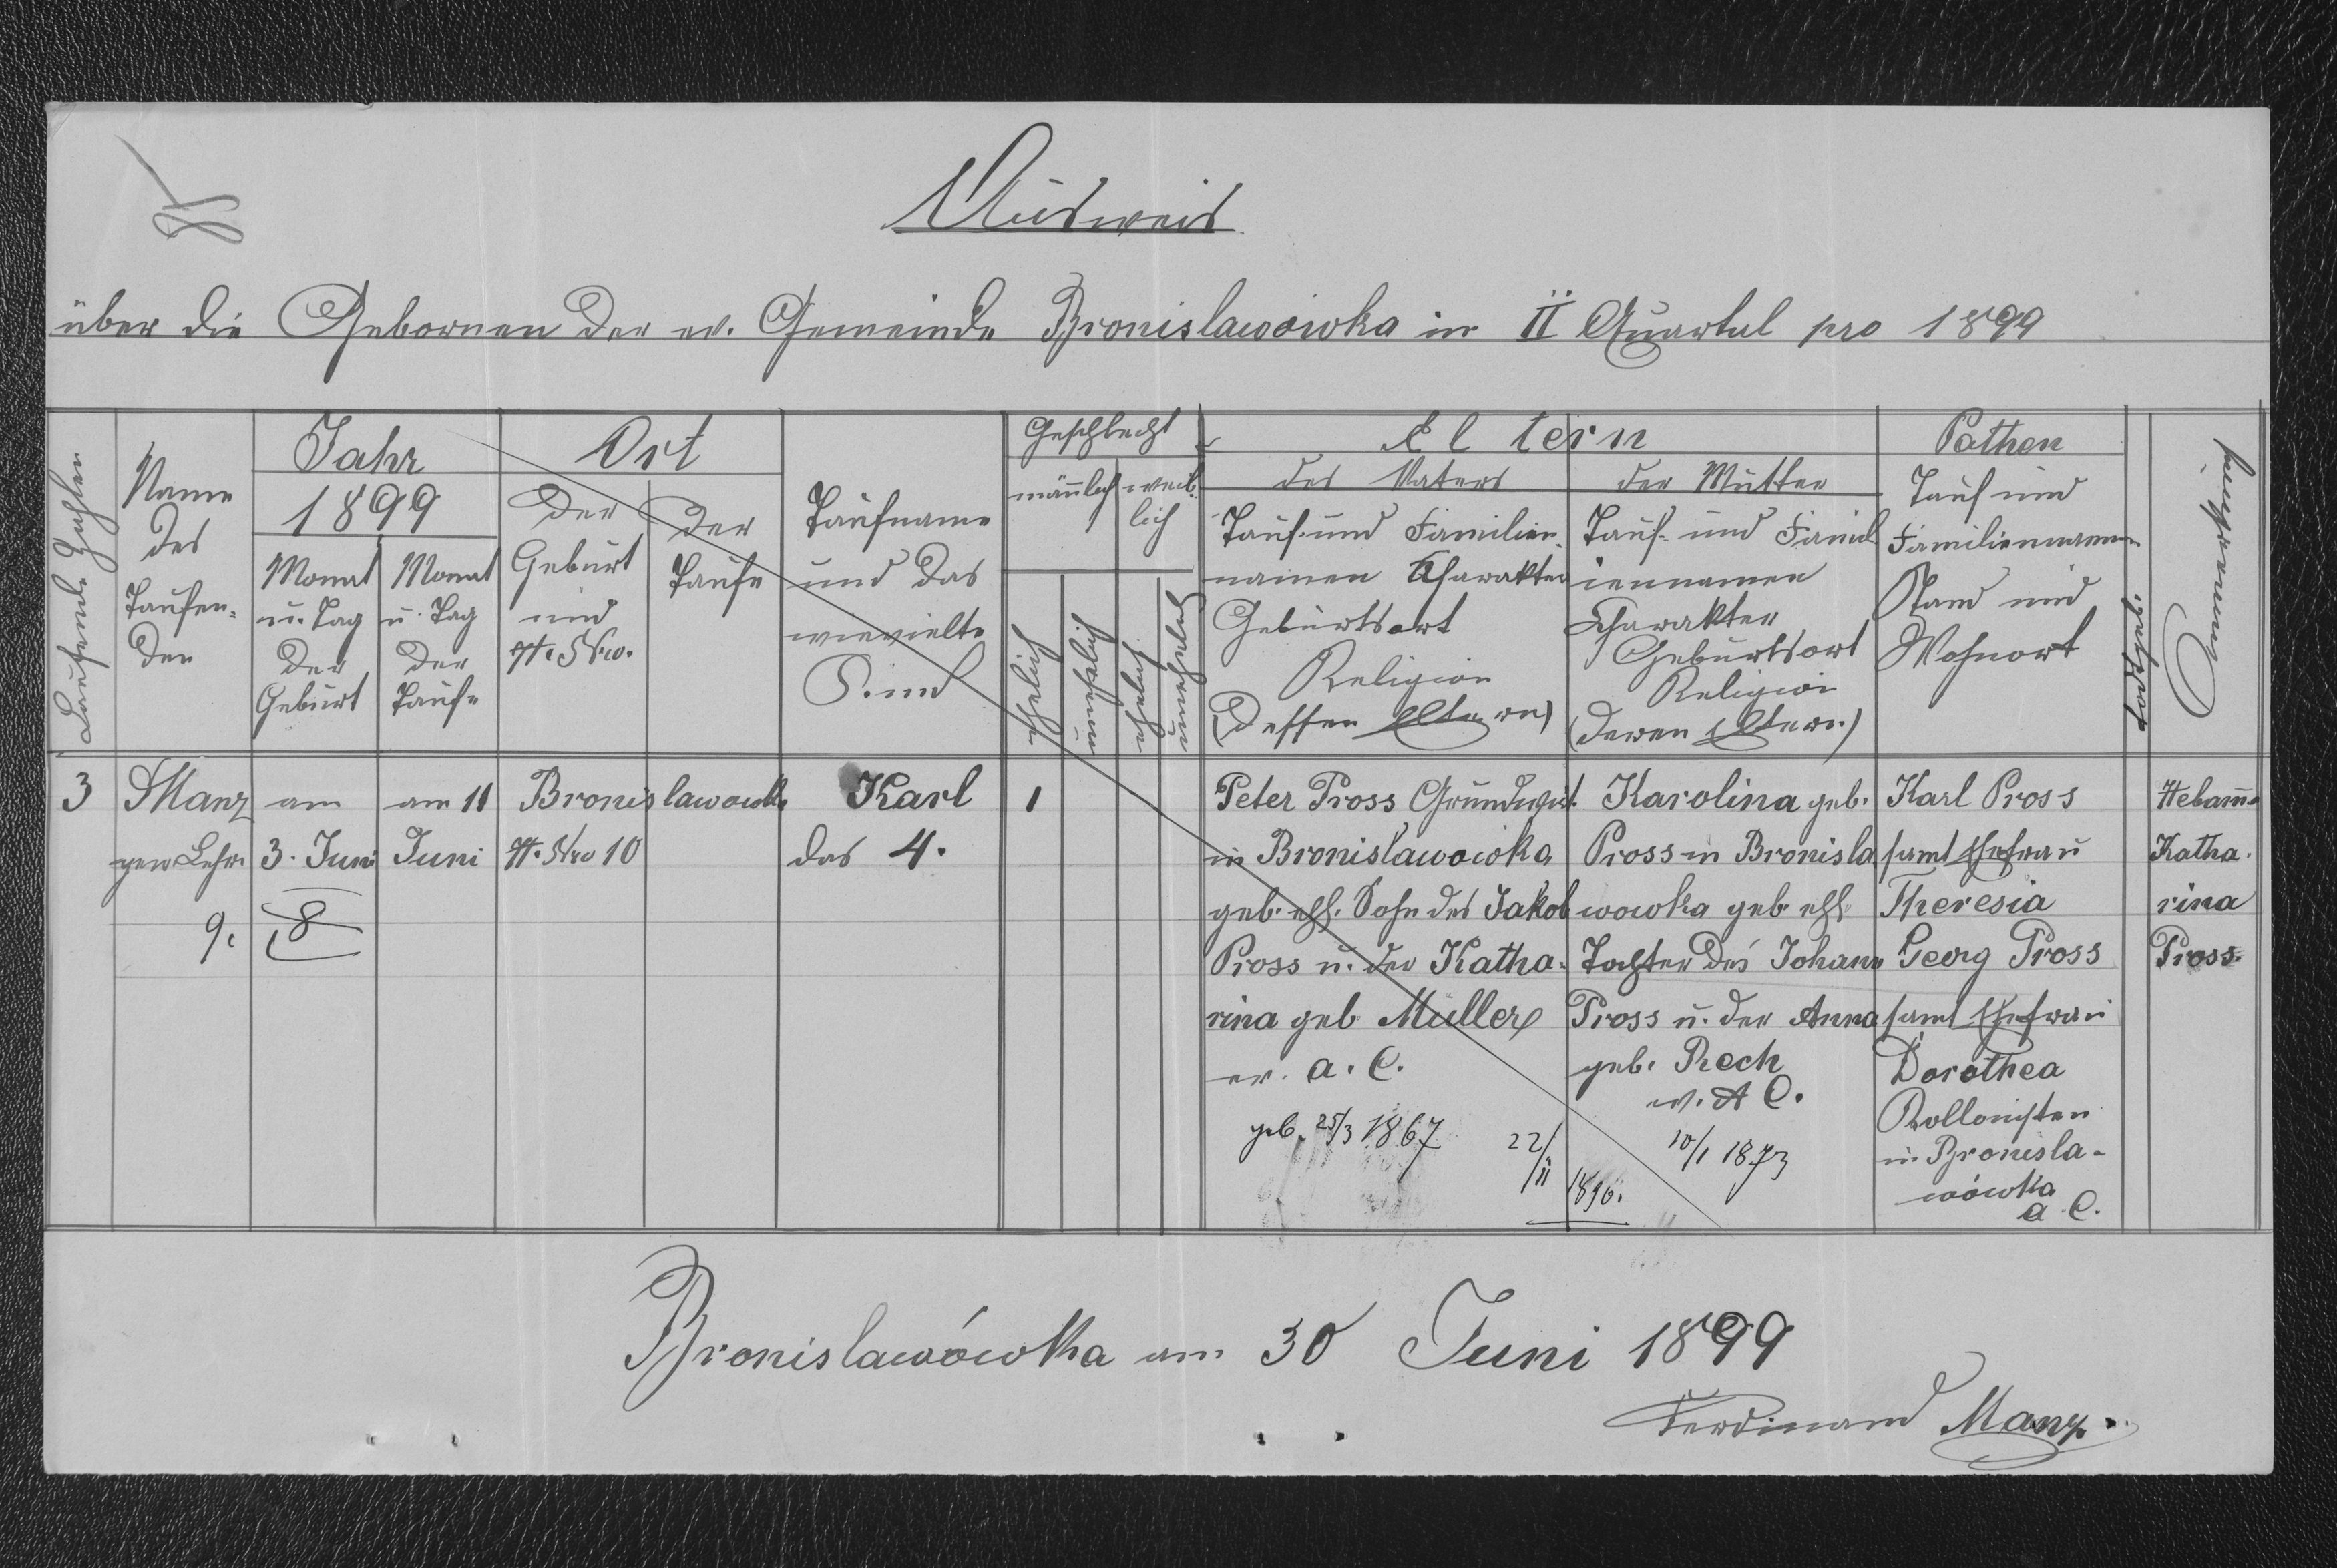 Ausweis
über die Gebornen der ev. Gemeinde Bronislawówka in II Quartal pro 1899
Laufende Zahlen
Name
des
Taufen-
den
Jahr
1899
Monat
u. Tag
der
Geburt
Monat
u. Tag
der
Taufe
Ort
Der
Geburt
und
H. Nro.
Der
Taufe
Taufname
und das
wievielte
Kind
Geschlecht
männlich
weib-
lich
ehelich
unehelich
ehelich
unehelich
Eltern
des Vaters
Tauf- und Familien-
namen Charakter
Geburtsort
Religion
(Dessen Eltern)
der Mutter
Tauf- und Famil
iennamen
Charakter
Geburtsort
Religion
(Deren Eltern)
Pathen
Tauf und
Familiennamen
Stand und
Wohnort
todtgeb.
Anmerkung
3
Manz
gew Lehr.
9.
am
3. Juni
8
am 11
Juni
Bronislawowka
H. Nro 10
Karl
das 4.
1
Peter Pross Grundwirt
in Bronislawowka
geb. ehl. Sohn des Jakob
Pross u. der Katha-
rina geb Müller
ev. A. C.
geb. 25/3 1867
22/II 1896.
Karolina geb.
Pross in Bronisla
wowka geb ehl
Tochter des Johann
Pross u. der Anna
geb. Rech
ev. A C.
10/1 1873
Karl Pross
samt Ehefrau
Theresia
Georg Pross
samt Ehefrau
Dorothea
Kollonisten
in Bronisla-
wówka
A. C.
Hebam̄e
Katha-
rina
Pross.
Bronislawówka am 30 Juni 1899
Ferdinand Manz.